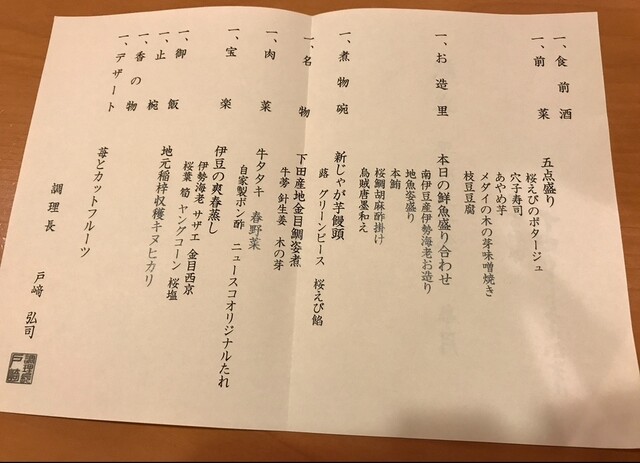 一、食前酒
一、前菜
五点盛り
桜えびのポタージュ
穴子寿司
あやめ芋
メダイの木の芽味噌焼き
枝豆豆腐
一、お造里
本日の鮮魚盛り合わせ
南伊豆産伊勢海老お造り
地魚姿盛り
本鮪
桜鯛胡麻酢掛け
烏賊唐墨和え
一、煮物碗
新じゃが芋饅頭
蕗 グリーンピース 桜えび餡
一、名物
下田産地金目鯛姿煮
牛蒡 針生姜 木の芽
一、肉菜
牛タタキ 春野菜
自家製ポン酢 ニュースコオリジナルたれ
一、宝楽
伊豆の爽春蒸し
伊勢海老 サザエ 金目西京
桜葉 筍 ヤングコーン 桜塩
一、御飯
地元稲梓収穫キヌヒカリ
一、止椀
一、香の物
一、デザート
苺とカットフルーツ
調理長 戸﨑 弘司